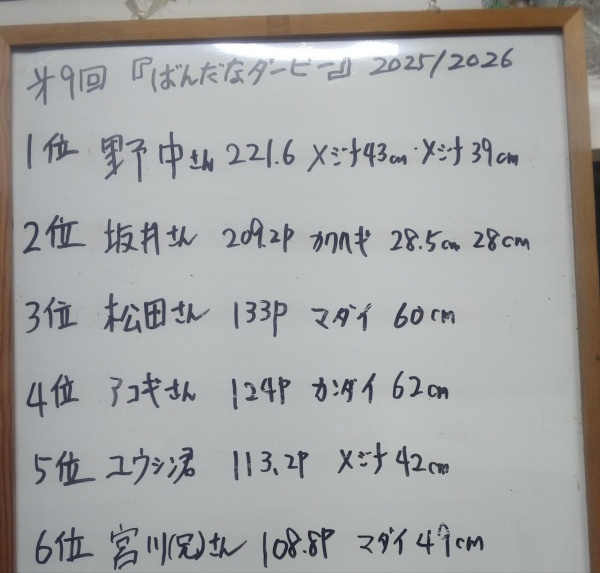 第9回『ばんだなダービー』 2025/2026
1位 野中さん 221.6 メジナ43cm・メジナ39cm
2位 坂井さん 209.2P カワハギ 28.5cm 28cm
3位 松田さん 133P マダイ 60cm
4位 アコギさん 124P カンダイ 62cm
5位 ユウシ君 113.2P メジナ42cm
6位 宮川(兄)さん 108.8P マダイ49cm